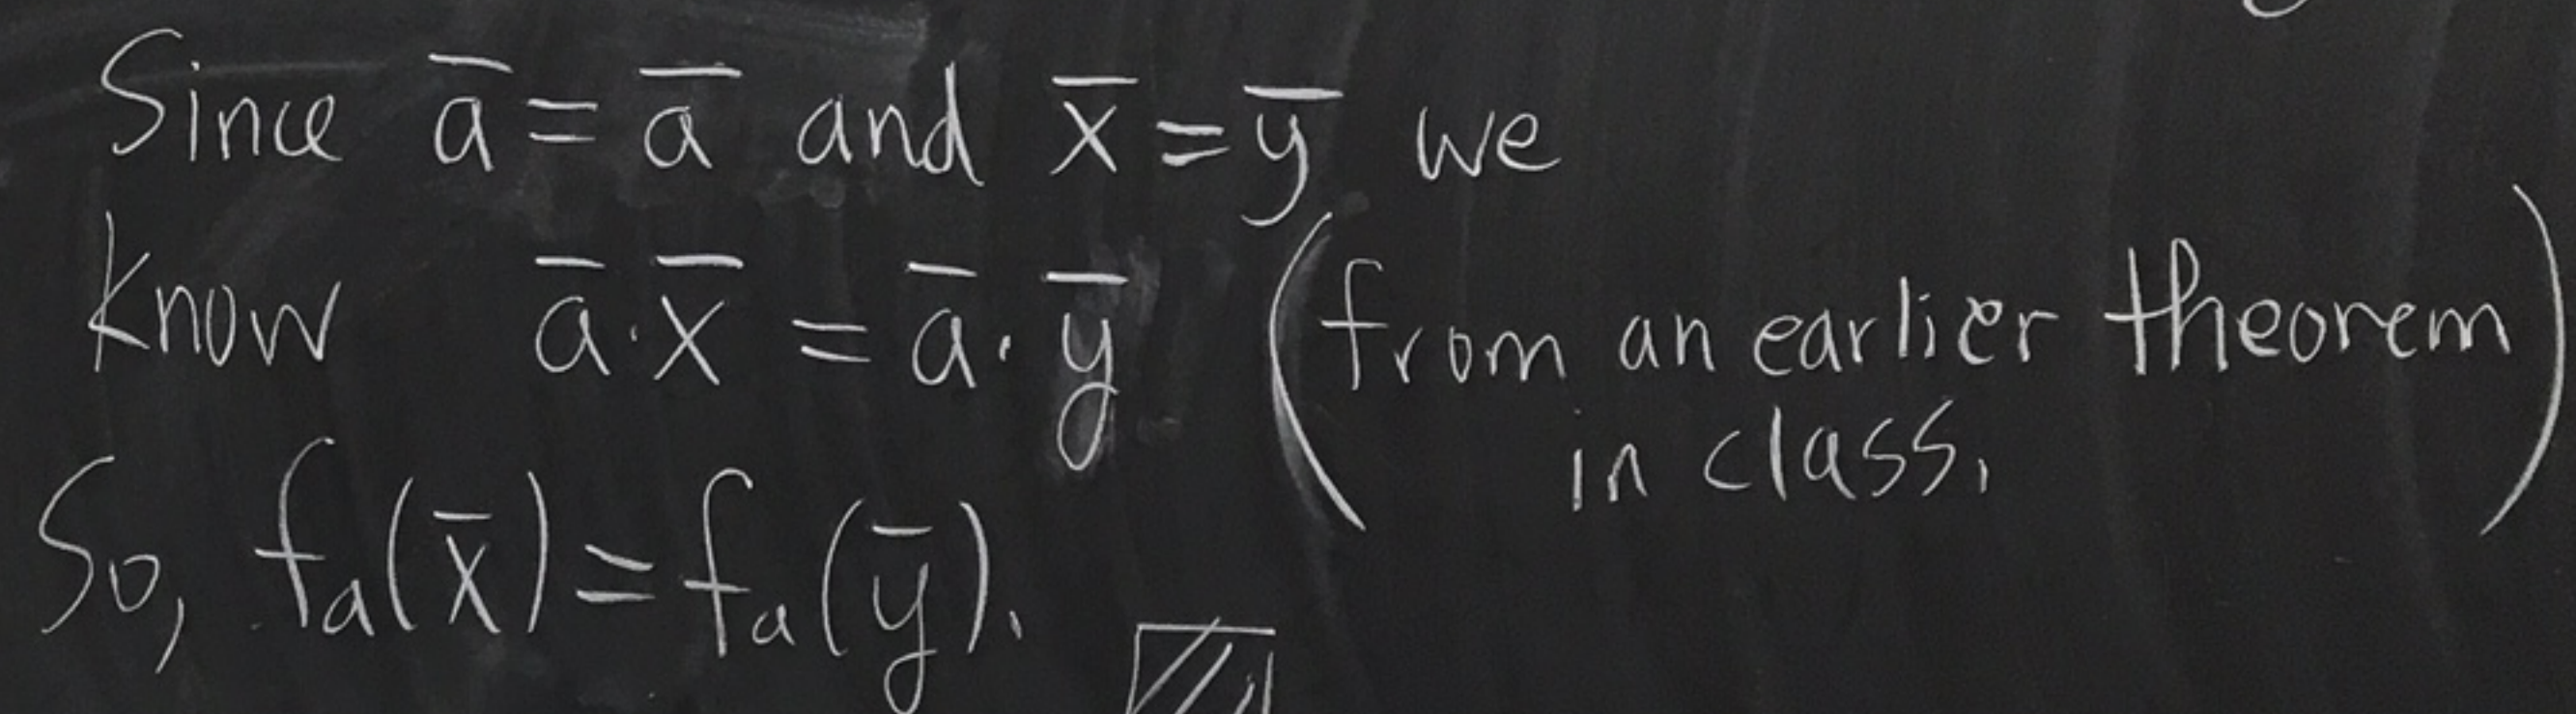 Since a̅ = a̅ and x̅ = y̅ we
know a̅·x̅ = a̅·y̅ (from an earlier theorem
in class.)
So, fₐ(x̅) = fₐ(y̅).